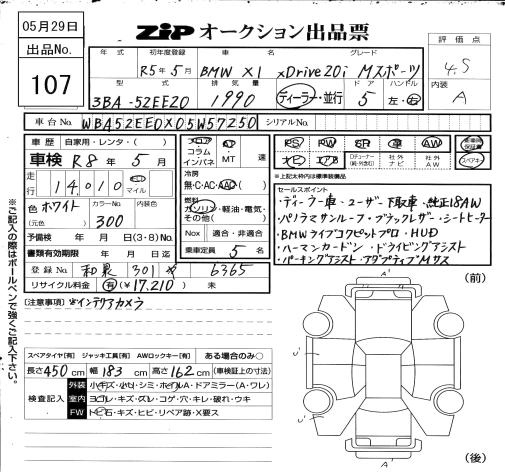 05月29日
ZIP オークション出品票
出品No.
107
年式 初年度登録 車名 グレード
R5年5月 BMW X1 xDrive20i Mスポーツ
評価点
4.5
内装
A
型式 排気量 ドア ハンドル
3BA-52EE20 1990 ディーラー・並行 5 左・右
車台No. WBA52EE0X05W57250 シリアルNo.
車歴 自家用・レンタ・( )
車検 R8年5月
フロア コラム インパネ AT MT 速
PS PW SR 革 AW
ナビ エアB
Dチューナー(純・外含む) 社外ナビ 社外AW
保証書
スペアキー
走行 14,010 km マイル
冷房
無・C・AC・AAC
※上記太枠内は標準装備品
色 ホワイト カラーNo. 300 内装色
燃料
ガソリン・軽油・電気・その他( )
予備検 年 月 日(3・8)No.
Nox 適合・非適合
書類有効期限 年 月 日迄
乗車定員 5 名
登録No. 和泉 301 や 6365
リサイクル料金 有(¥17,210) 未
セールスポイント
・ディーラー車・ユーザー下取車・純正18AW
・パノラマサンルーフ・ブラックレザー・シートヒーター
・BMWライブコクピットプロ・HUD
・ハーマンカードン・ドライビングアシスト
・パーキングアシスト・アダプティブMサス
注意事項 インテリアカメラ
(前)
スペアタイヤ[有] ジャッキ工具[有] AWロックキー[有] ある場合のみ○
長さ450cm 幅183cm 高さ162cm (車検証上の寸法)
検査記入
外装 小キズ・小凹・シミ・ホイルA・ドアミラー(A・ワレ)
室内 ヨゴレ・キズ・スレ・コゲ・穴・キレ・破れ・ウキ
FW トビ石・キズ・ヒビ・リペア跡・X要ス
A'
U'
U'
A'
(後)
※ご記入の際はボールペンで強くご記入下さい。